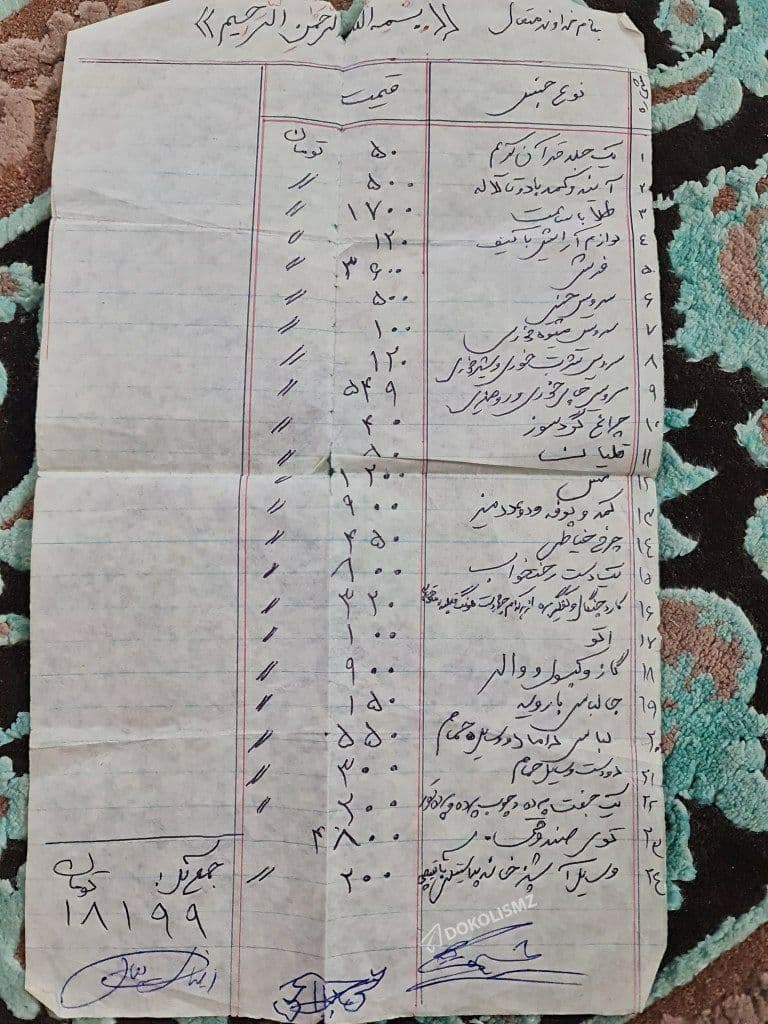 بنام خداوند متعال 《 بسم الله الرحمن الرحیم 》
شماره نوع جنس قیمت
۱ یک جلد قرآن کریم ۵۰ تومان
۲ آینه و کمد با دو تا لاله ۵۰۰ //
۳ طلا با ساعت ۱۷۰۰ //
٤ لوازم آرایش با کیف ۱۲۰ //
۵ فرش ۳۶۰۰ //
۶ سرویس چینی ۵۰۰ //
۷ سرویس میوه خوری ۱۰۰ //
۸ سرویس شربت خوری و شیر خوری ۱۲۰ //
۹ سرویس چای خوری و رومیزی ۵۴۹ //
۱۰ چراغ گردسوز ۴۰ //
۱۱ قلیان ۸۰ //
۱۲ مس ۱۲۰۰ //
۱۳ کمد و بوفه و دو عدد میز ۹۰۰ //
۱٤ چرخ خیاطی ۴۵۰ //
۱۵ یک دست رختخواب ۸۰۰ //
۱۶ کارد چنگال و کفگیر ۳۳۰ //
۱۷ اتو ۱۰۰ //
۱۸ گاز و کپسول و والر ۹۰۰ //
۱۹ جالباسی با رویه ۱۵۰ //
۲۰ لباس داماد و وسیله حمام ۵۵۰ //
۲۱ دو دست وسیله حمام ۳۰۰ //
۲۲ یک جفت پرده و چوب پرده و ۲۰۰ //
۲۳ توی صندوق ۴۸۰۰
۲٤ وسیله آشپزخانه پلاستیکی با قیچی ۲۰۰ //
جمع کل: تومان
۱۸۱۹۹
DOKOLISMZ